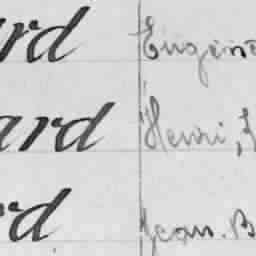 rd Eugène
ard Henri, J
rd Jean. B